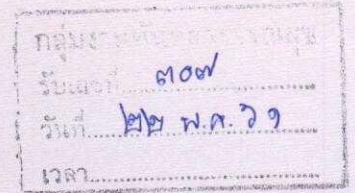 กลุ่มงาน
รับเลขที่ ๓๐๗
วันที่ ๒๒ พ.ค. ๖๑
เวลา